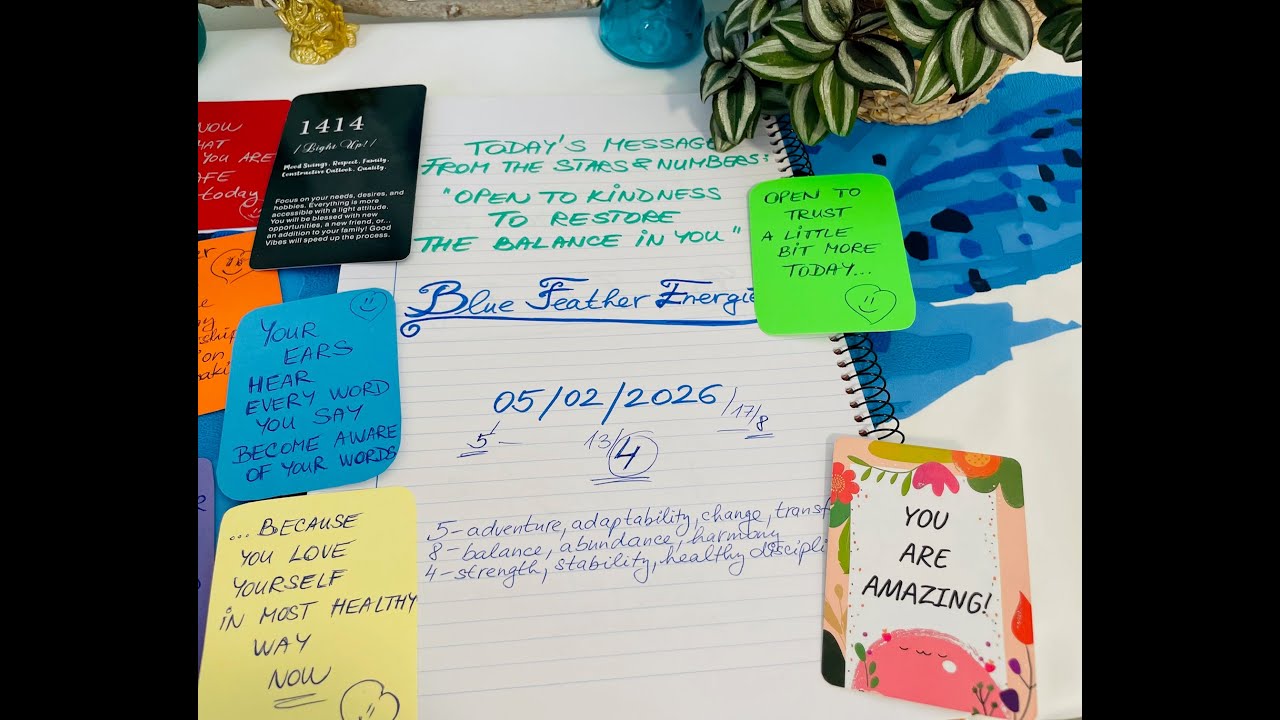 NOW
YOU ARE
today
1414
/Light Up!/
Mood Swings. Respect. Family.
Constructive Outlook. Quality.
Focus on your needs, desires, and
hobbies. Everything is more
accessible with a light attitude.
You will be blessed with new
opportunities, a new friend, or...
an addition to your family! Good
Vibes will speed up the process.
TODAY'S MESSAGE
FROM THE STARS & NUMBERS:
"OPEN TO KINDNESS
TO RESTORE
THE BALANCE IN YOU"
Blue Feather Energie
OPEN TO
TRUST
A LITTLE
BIT MORE
TODAY...
YOUR
EARS
HEAR
EVERY WORD
YOU SAY
BECOME AWARE
OF YOUR WORDS
05/02/2026/17/8
5 13/4
5-adventure, adaptability, change, transf
8-balance, abundance, harmony
4-strength, stability, healthy discipli
...BECAUSE
YOU LOVE
YOURSELF
IN MOST HEALTHY
WAY
NOW
YOU
ARE
AMAZING!